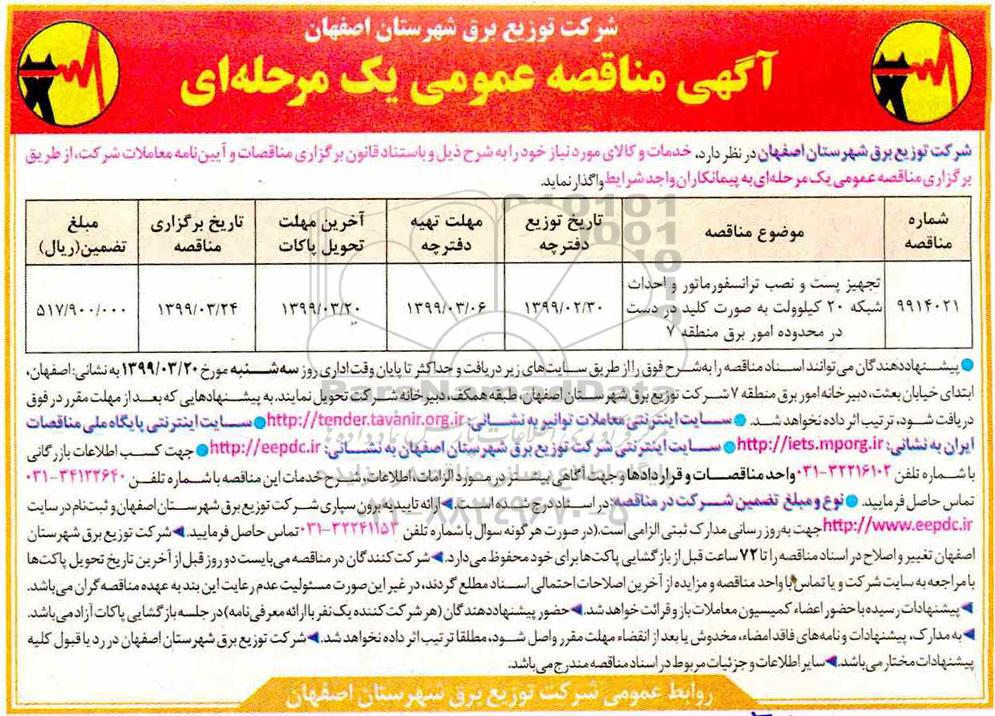 شرکت توزیع برق شهرستان اصفهان
آگهی مناقصه عمومی یک مرحله‌ای
شرکت توزیع برق شهرستان اصفهان در نظر دارد، خدمات و کالای مورد نیاز خود را به شرح ذیل و باستناد قانون برگزاری مناقصات و آیین‌نامه معاملات شرکت، از طریق
برگزاری مناقصه عمومی یک مرحله‌ای به پیمانکاران واجد شرایط واگذار نماید.
شماره مناقصه موضوع مناقصه تاریخ توزیع دفترچه مهلت تهیه دفترچه آخرین مهلت تحویل پاکات تاریخ برگزاری مناقصه مبلغ تضمین(ریال)
۹۹۱۴۰۲۱ تجهیز پست و نصب ترانسفورماتور و احداث شبکه ۲۰ کیلوولت به صورت کلید در دست در محدوده امور برق منطقه ۷ ۱۳۹۹/۰۲/۳۰ ۱۳۹۹/۰۳/۰۶ ۱۳۹۹/۰۳/۲۰ ۱۳۹۹/۰۳/۲۴ ۵۱۷/۹۰۰/۰۰۰
● پیشنهاددهندگان می‌توانند اسناد مناقصه را به شرح فوق را از طریق سایت‌های زیر دریافت و حداکثر تا پایان وقت اداری روز سه‌شنبه مورخ ۱۳۹۹/۰۳/۲۰ به نشانی: اصفهان،
ابتدای خیابان بعثت، دبیرخانه امور برق منطقه ۷ شرکت توزیع برق شهرستان اصفهان، طبقه همکف، دبیرخانه شرکت تحویل نمایند، به پیشنهادهایی که بعد از مهلت مقرر در فوق
دریافت شود، ترتیب اثر داده نخواهد شد. ● سایت اینترنتی معاملات توانیر به نشانی: http://tender.tavanir.org.ir ● سایت اینترنتی پایگاه ملی مناقصات
ایران به نشانی: http://iets.mporg.ir ● سایت اینترنتی شرکت توزیع برق شهرستان اصفهان به نشانی: http://eepdc.ir ● جهت کسب اطلاعات بازرگانی
با شماره تلفن ۳۲۲۱۶۱۰۲-۰۳۱ واحد مناقصات و قراردادها و جهت آگاهی بیشتر در مورد الزامات، اطلاعات، شرح خدمات این مناقصه با شماره تلفن ۳۴۱۲۲۶۴۰-۰۳۱
تماس حاصل فرمایید. ● نوع و مبلغ تضمین شرکت در مناقصه در اسناد درج شده است. ◄ ارائه تاییدیه برون سپاری شرکت توزیع برق شهرستان اصفهان و ثبت‌نام در سایت
http://www.eepdc.ir جهت به روز رسانی مدارک ثبتی الزامی است.(در صورت هر گونه سوال با شماره تلفن ۳۲۲۴۱۱۵۳-۰۳۱ تماس حاصل فرمایید. ◄ شرکت توزیع برق شهرستان
اصفهان تغییر و اصلاح در اسناد مناقصه را تا ۷۲ ساعت قبل از بازگشایی پاکت‌ها برای خود محفوظ می‌دارد. ◄ شرکت کنندگان در مناقصه می‌بایست دو روز قبل از آخرین تاریخ تحویل پاکت‌ها
با مراجعه به سایت شرکت و یا تماس با واحد مناقصه و مزایده از آخرین اصلاحات احتمالی اسناد مطلع گردند، در غیر این صورت مسئولیت عدم رعایت این بند به عهده مناقصه گران می‌باشد.
◄ پیشنهادات رسیده با حضور اعضاء کمیسیون معاملات باز و قرائت خواهد شد. ◄ حضور پیشنهاددهندگان (هر شرکت کننده یک نفر با ارائه معرفی‌نامه) در جلسه بازگشایی پاکات آزاد می‌باشد.
◄ به مدارک، پیشنهادات و نامه‌های فاقد امضاء، مخدوش یا بعد از انقضاء مهلت مقرر واصل شود، مطلقا ترتیب اثر داده نخواهد شد. ◄ شرکت توزیع برق شهرستان اصفهان در رد یا قبول کلیه
پیشنهادات مختار می‌باشد. ◄ سایر اطلاعات و جزئیات مربوط در اسناد مناقصه مندرج می‌باشد.
روابط عمومی شرکت توزیع برق شهرستان اصفهان
ParsNamadData